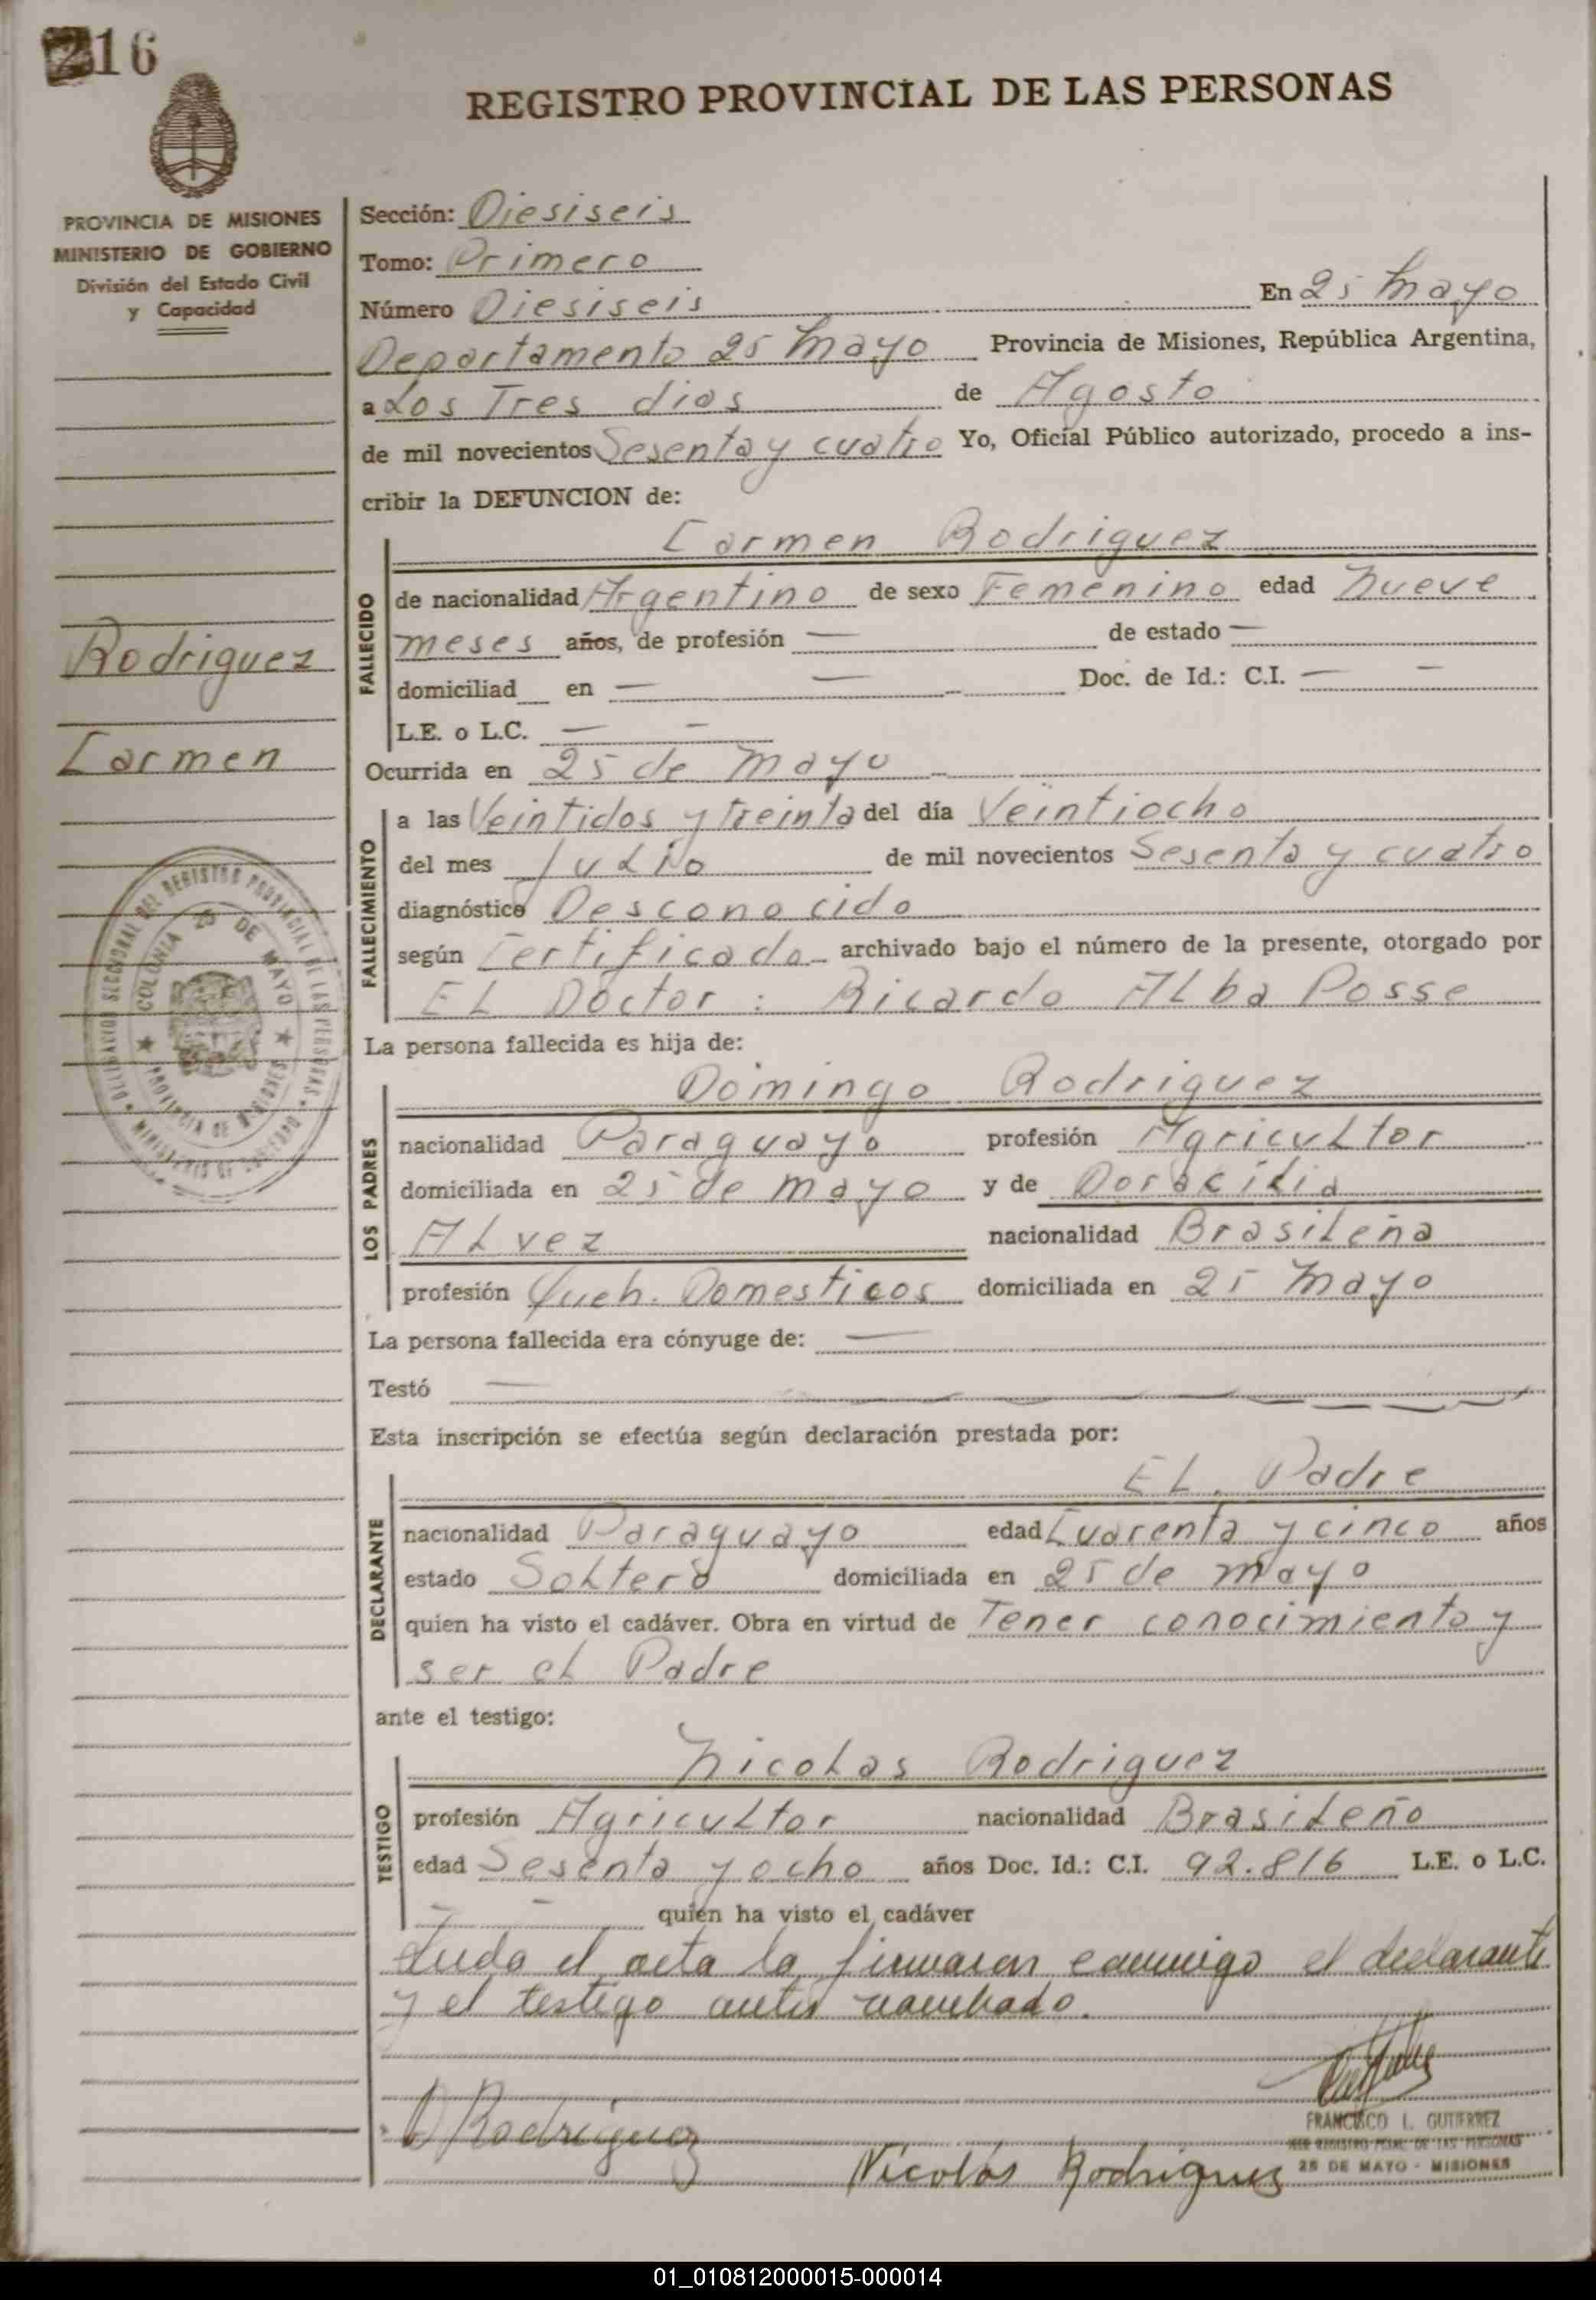 216
REGISTRO PROVINCIAL DE LAS PERSONAS
PROVINCIA DE MISIONES
MINISTERIO DE GOBIERNO
División del Estado Civil
y Capacidad
Sección: Diesiseis
Tomo: Primero
Número Diesiseis En 25 Mayo
Departamento 25 Mayo Provincia de Misiones, República Argentina,
a Los Tres dias de Agosto
de mil novecientos Sesenta y cuatro Yo, Oficial Público autorizado, procedo a ins-
cribir la DEFUNCION de:
Carmen Rodriguez
FALLECIDO
de nacionalidad Argentino de sexo Femenino edad Nueve
meses años, de profesión — de estado —
domiciliad en — — Doc. de Id.: C.I. — —
L.E. o L.C. — —
Rodriguez
Carmen
Ocurrida en 25 de Mayo
FALLECIMIENTO
a las Veintidos y treinta del día Veintiocho
del mes Julio de mil novecientos Sesenta y cuatro
diagnóstico Desconocido
según Certificado archivado bajo el número de la presente, otorgado por
EL Doctor: Ricardo ALba Posse
DELEGACION SECCIONAL DEL REGISTRO PROVINCIAL DE LAS PERSONAS
COLONIA 25 DE MAYO
PROVINCIA DE MISIONES
MINISTERIO DE GOBIERNO
La persona fallecida es hija de:
Domingo Rodriguez
LOS PADRES
nacionalidad Paraguayo profesión Agricultor
domiciliada en 25 de Mayo y de Doracilia
ALvez nacionalidad Brasileña
profesión Queh. Domesticos domiciliada en 25 Mayo
La persona fallecida era cónyuge de: —
Testó —
Esta inscripción se efectúa según declaración prestada por:
EL Padre
DECLARANTE
nacionalidad Paraguayo edad Cuarenta y cinco años
estado Soltero domiciliada en 25 de Mayo
quien ha visto el cadáver. Obra en virtud de Tener conocimiento y
ser el Padre
ante el testigo:
Nicolas Rodriguez
TESTIGO
profesión Agricultor nacionalidad Brasileño
edad Sesenta y ocho años Doc. Id.: C.I. 92.816 L.E. o L.C.
— — quien ha visto el cadáver
Leida el acta la firmaron conmigo el declarante
y el testigo antes nombrado.
D Rodriguez
Nicolás Rodriguez
FRANCISCO L. GUTIERREZ
JEFE REGISTRO PCIAL. DE LAS PERSONAS
25 DE MAYO - MISIONES
01_010812000015-000014